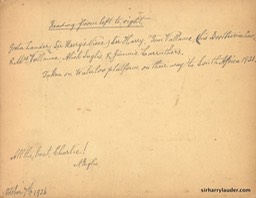 Reading from left to right
Greta Lauder, Sir Harry's Niece; Sir Harry, Tom Vallance, (his Brother in law,
& Mrs Vallance, Alick Inglis & Jimmie Carruthers.
Taken on Waterloo platform on their way to South Africa 1925.
All the best, Charlie!
A Inglis
1925
sirharrylauder.com